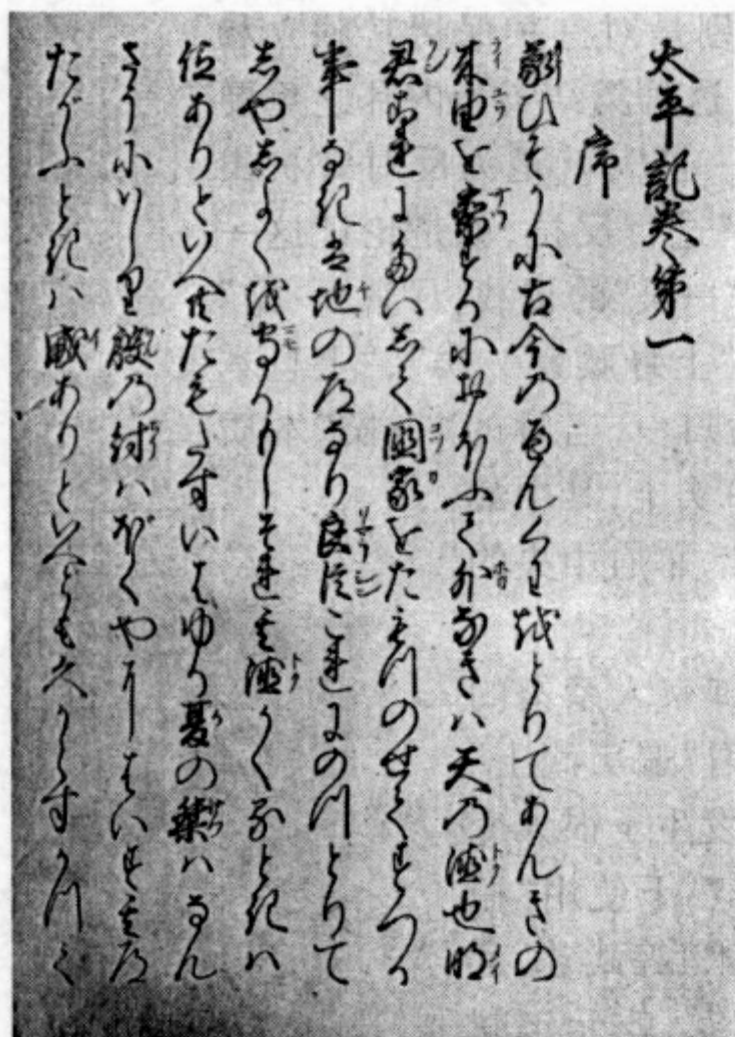 太平記巻第一
序
蒙ひそかに古今のへんくわをとりてあんきの
来由を察するにおほふて外なきハ天の徳也明
君これにたいして国家をたもつのせてすつる
事なきは地の道なり良臣これにのつとりて
しやしよくを守るもしそれ其徳かくるときハ
位ありといへ共たもたすいはゆる夏の桀ハなん
さうにハしり殷の紂ハぼくやにはいす其道
たがふときハ威ありといへども久しからすかつて